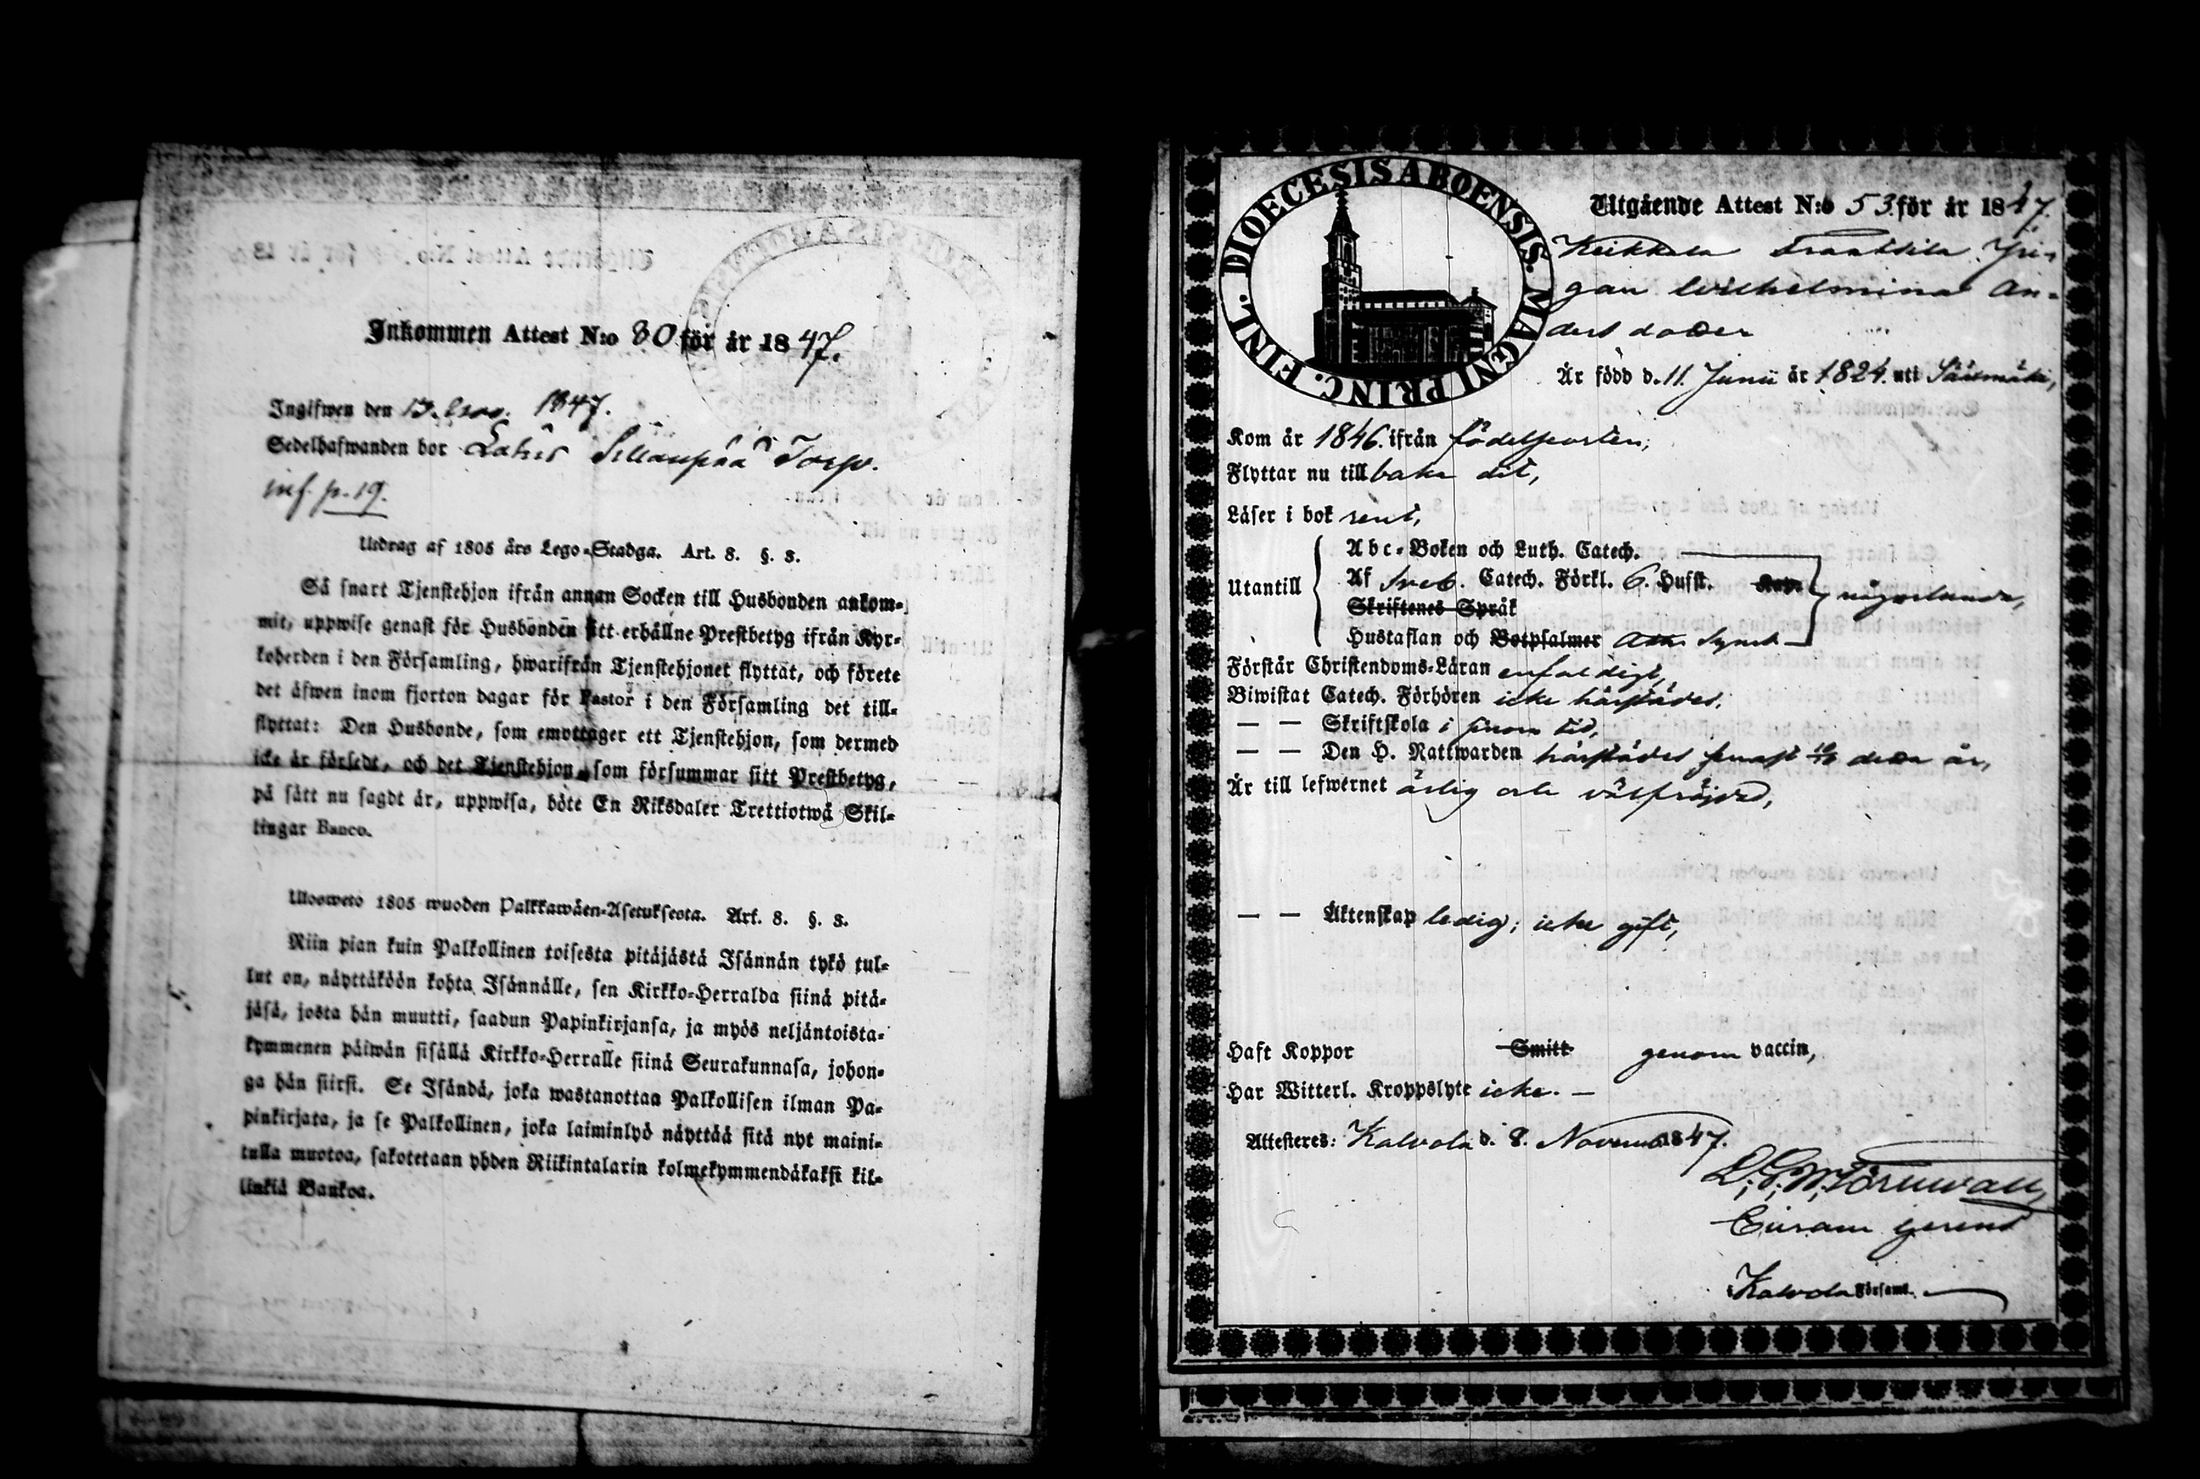 Inkommen Attest N:o 80 för år 1847.
Ingifwen den 13. Nov. 1847.
Sedelhafwanden bor Torp.
inf. p. 19.
Utdrag af 1805 års Lego-Stadga. Art. 8. §. 3.
Så snart Tjenstehjon ifrån annan Socken till Husbonden ankom-
mit, uppwise genast för Husbonden sitt erhållne Prestbetyg ifrån Kyr-
koherden i den Församling, hwarifrån Tjenstehjonet flyttat, och förete
det äfwen inom fjorton dagar för Pastor i den Församling det till-
flyttat: Den Husbonde, som emottager ett Tjenstehjon, som dermed
icke är försedt, och det Tjenstehjon, som försummar sitt Prestbetyg,
på sätt nu sagdt är, uppwisa, böte En Riksdaler Trettiotwå Skil-
lingar Banco.
Ulosweto 1805 wuoden Palkkawäen-Asetuksesta. Art. 8. §. 3.
Niin pian kuin Palkollinen toisesta pitäjästä Isännän tykö tul-
lut on, näyttäköön kohta Isännälle, sen Kirkko-Herralda siinä pitä-
jäsä, josta hän muutti, saadun Papinkirjansa, ja myös neljäntoista-
kymmenen päiwän sisällä Kirkko-Herralle siinä Seurakunnasa, johon-
ga hän siirsi. Se Isändä, joka wastanottaa Palkollisen ilman Pa-
pinkirjata, ja se Palkollinen, joka laiminlyö näyttää sitä nyt maini-
tulla muotoa, sakotetaan yhden Riikintalarin kolmekymmendäkaksi kil-
linkiä Bankoa.
DIOECESIS ABOENSIS. MAGNI PRINC. FINL.
Utgående Attest N:o 53 för år 1847.
Keikkala Pi-
gan Wilhelmina An-
ders doter
Är född d. 11. Junii år 1824. uti Sääxmäki,
Kom år 1846. ifrån födelseorten,
Flyttar nu till baka dit,
Läser i bok rent,
Utantill
Abc-Boken och Luth. Catech.
Af Sveb. Catech. Förkl. 6. Husst.
Skriftenes Språk
Hustaflan och Botpsalmer Ath. Symb.
någorlunda,
Förstår Christendoms-Läran enfaldigt,
Biwistat Catech. Förhören icke härstädes,
— — Skriftskola i sinom tid,
— — Den H. Nattwarden härstädes senast detta år,
Är till lefwernet ärlig och välfräjdad,
— — Äktenskap ledig; icke gift,
Haft Koppor Smitt genom vaccin,
Har Witterl. Kroppslyte icke. —
Attesteres: Kalvola d. 8. Novemb. 1847.
Curam gerens
i Kalvola Församl.